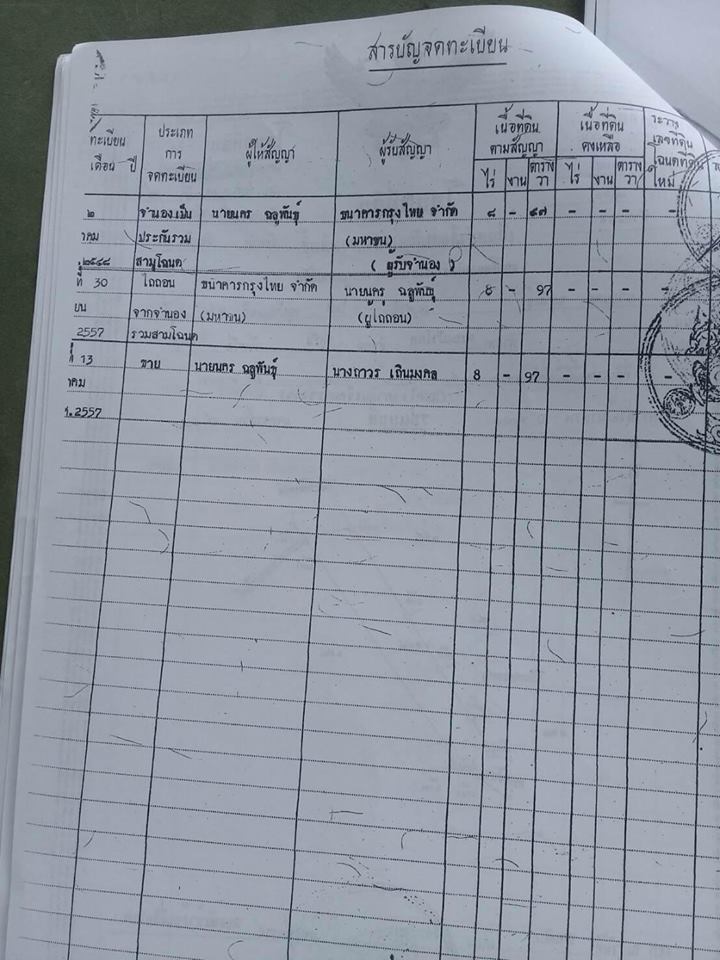 สารบัญจดทะเบียน
ทะเบียน
เดือน ปี
ประเภท
การ
จดทะเบียน
ผู้ให้สัญญา
ผู้รับสัญญา
เนื้อที่ดิน
ตามสัญญา
เนื้อที่ดิน
คงเหลือ
ระวาง
เลขที่ดิน
โฉนดที่ดิน
ใหม่
ไร่ งาน ตาราง
วา
ไร่ งาน ตาราง
วา
๒ จำนองเป็น นายนคร ฉลูพันธุ์ ธนาคารกรุงไทย จำกัด ๘ - ๙๗ - - - -
าคม ประกันรวม (มหาชน)
๒๕๔๘ สามโฉนด ( ผู้รับจำนอง )
ที่ 30 ไถ่ถอน ธนาคารกรุงไทย จำกัด นายนคร ฉลูพันธุ์ 8 - 97 - - - -
ยน จากจำนอง (มหาชน) (ผู้ไถ่ถอน)
2557 รวมสามโฉนด
ที่ 13 ขาย นายนคร ฉลูพันธุ์ นางถาวร เถินมงคล 8 - 97 - - - -
าคม
.2557